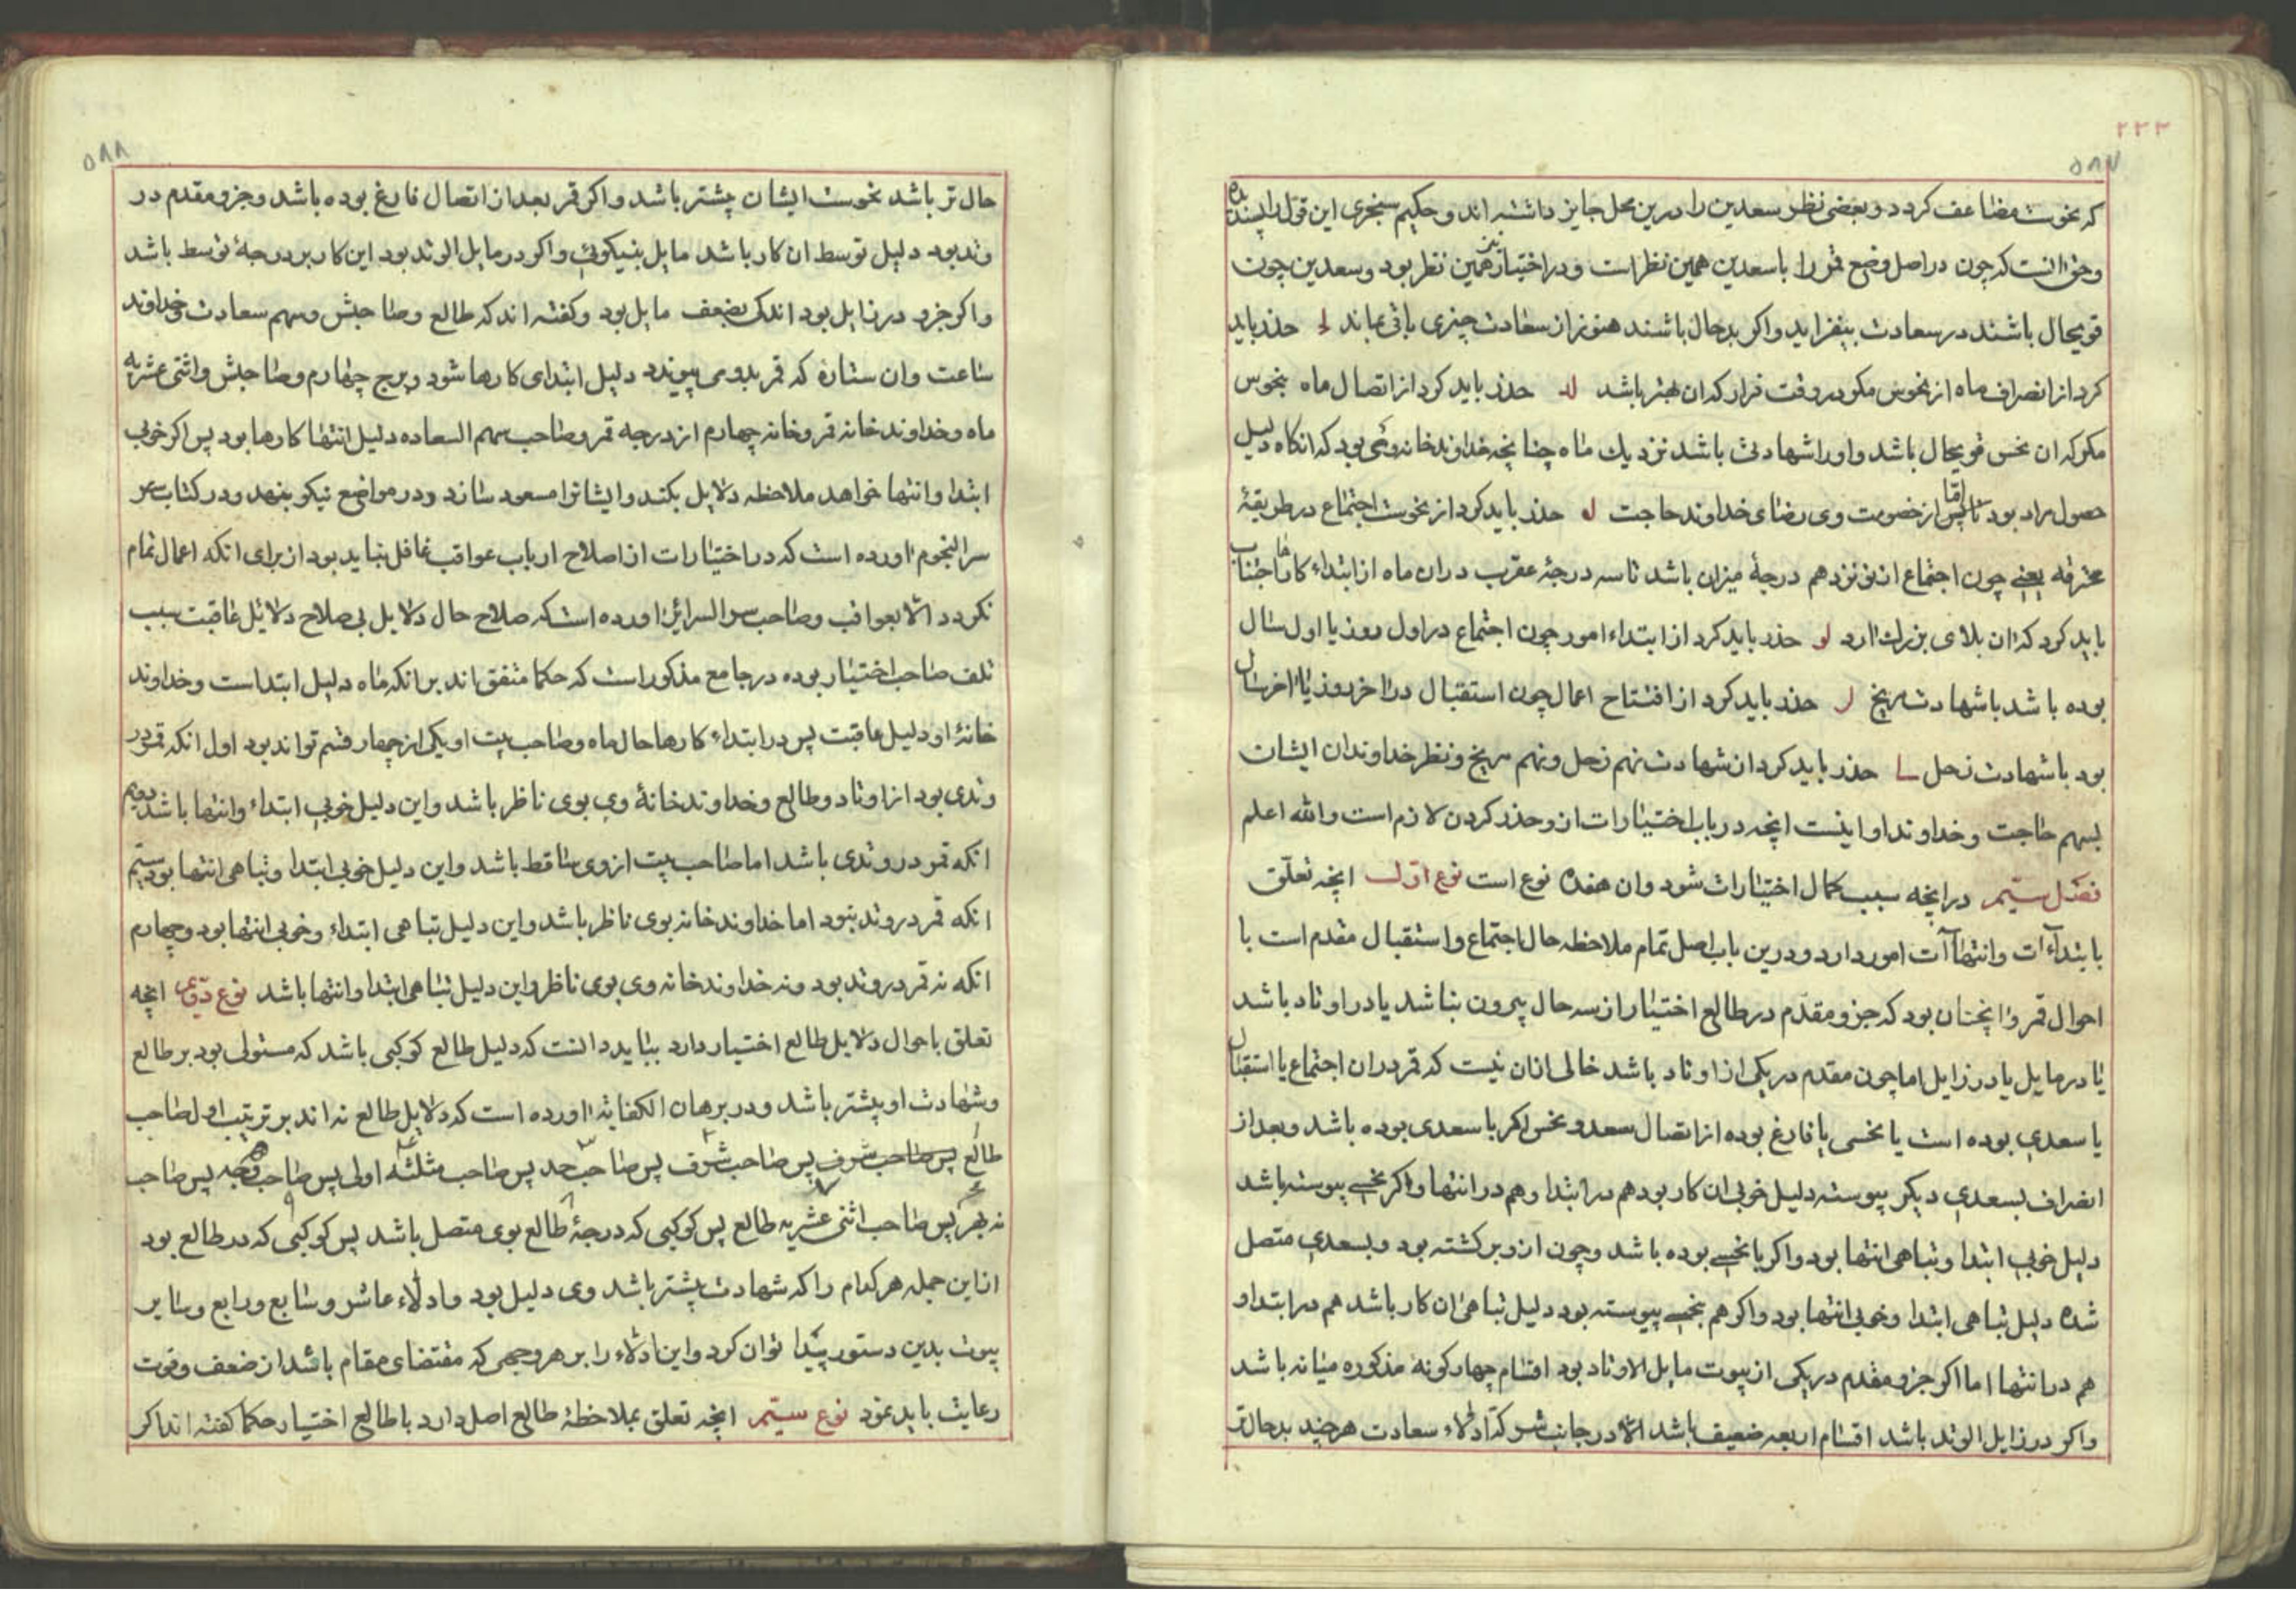 ۲۳۳
۵۸۷
که نحوست مضاعف کردد و بعضی نظر سعدین را درین محل جایز داشته اند و حکیم سجزی این قول را پسندیده
و حق انست که چون در اصل وضع قمر را با سعدین همین نظر است و در اختیار نیز همین نظر بود و سعدین چون
قویحال باشند در سعادت بیفزاید و اکر بدحال باشند هنوز از سعادت چیزی باقی بماند حذر باید
کرد از انصراف ماه از نحوس مکر در وقت فرار که ان بهتر باشد حذر باید کرد از اتصال ماه بنحوس
مکر که ان نحس قویحال باشد و او را شهادتی باشد نزدیك ماه چنانچه خداوند خانه وی بود که انکاه دلیل
حصول مراد بود اما پس از خصومت وی رضای خداوند حاجت حذر باید کرد از نحوست اجتماع در طریقهٔ
محترقه یعنی چون اجتماع از نوزدهم درجهٔ میزان باشد تا سه درجهٔ عقرب دران ماه از ابتداء کارها اجتناب
باید کرد که ان بلای بزرك ارد لو حذر باید کرد از ابتداء امور چون اجتماع در اول روز یا اول سال
بوده باشد باشهادت مریخ حذر باید کرد از افتتاح اعمال چون استقبال در اخر روز یا اخر سال
بود با شهادت زحل حذر باید کرد از شهادت نهم زحل و نهم مریخ و نظر خداوندان ایشان
بسهم حاجت و خداوند او اینست انچه در باب اختیارات از و حذر کردن لازم است والله اعلم
فصل سیّم در انچه سبب کمال اختیارات شود و ان هفده نوع است نوع اوّل انچه تعلّق
بابتداآت و انتهاآت امور دارد و درین باب اصل تمام ملاحظه حال اجتماع و استقبال مقدم است با
احوال قمر و انچنان بود که جزو مقدّم در طالع اختیار از سه حال بیرون نباشد یا در اوتاد باشد
یا در مایل یا در زایل اما چون مقدم در یکی از اوتاد باشد خالی ازان نیست که قمر دران اجتماع یا استقبال
با سعدی بوده است یا نحسی یا فارغ بوده از اتصال سعد و نحس اکر با سعدی بوده باشد و بعد از
انصراف بسعدی دیکر پیوسته دلیل خوبی ان کار بود هم در ابتدا و هم در انتها و اکر بنحسی پیوسته باشد
دلیل خوبی ابتدا و تباهی انتها بود و اکر با نحسی بوده باشد و چون از و برکشته بود و بسعدی متصل
شده دلیل تباهی ابتدا و خوبی انتها بود و اکر هم بنحسی پیوسته بود دلیل تباهی ان کار باشد هم در ابتدا و
هم در انتها اما اکر جزو مقدم در یکی از بیوت مایل الاوتاد بود اقسام چهارکونه مذکوره میانه باشد
و اکر در زایل الوتد باشد اقسام اربعه ضعیف باشد الا در جانب شر که ادلاء سعادت هرچند بدحالتر
۵۸۸
حال تر باشد نحوست ایشان بیشتر باشد و اکر قمر بعد از اتصال فارغ بوده باشد و جزو مقدم در
وتد بود دلیل توسط ان کار باشد مایل بنیکوئی و اکر در مایل الوتد بود این کار بر درجهٔ توسط باشد
و اکر جزو در زایل بود اندکی بضعف مایل بود و کفته اند که طالع و صاحبش و سهم سعادت و خداوند
ساعت و ان ستاره که قمر بدو می پیوندد دلیل ابتدای کارها شود و برج چهارم و صاحبش و اثنی عشریه
ماه و خداوند خانه قمر و خانه چهارم از درجه قمر و صاحب سهم السعاده دلیل انتها کارها بود پس اکر خوبی
ابتدا و انتها خواهد ملاحظه دلایل بکند و ایشانرا مسعود سازد و در مواضع نیکو بنهد و در کتاب سر
سر النجوم اورده است که در اختیارات از اصلاح ارباب عواقب غافل نباید بود از برای انکه اعمال تمام
نکردد الا بعواقب و صاحب سر السرائر اورده است که صلاح حال دلایل بی صلاح دلائل عاقبت سبب
تلف صاحب اختیار بوده در جامع مذکور است که حکما متفق اند برانکه ماه دلیل ابتداست و خداوند
خانهٔ او دلیل عاقبت پس در ابتداء کارها حال ماه و صاحب بیت او یکی از چهار قسم تواند بود اول انکه قمر در
وتدی بود از اوتاد و طالع و خداوند خانهٔ وی بوی ناظر باشد و این دلیل خوبی ابتداء و انتها باشد دوم
انکه قمر در وتدی باشد اما صاحب بیت از وی ساقط باشد و این دلیل خوبی ابتدا و تباهی انتها بود سیّم
انکه قمر در وتد نبود اما خداوند خانه بوی ناظر باشد و این دلیل تباهی ابتداء و خوبی انتها بود و چهارم
انکه نه قمر در وتد بود و نه خداوند خانه وی بوی ناظر و این دلیل تباهی ابتدا و انتها باشد نوع دوّم انچه
تعلق باحوال دلایل طالع اختیار دارد بباید دانست که دلیل طالع کوکبی باشد که مستولی بود بر طالع
و شهادت او بیشتر باشد و در برهان الکفایة اورده است که دلایل طالع نه اند بر ترتیب اول صاحب
طالع پس صاحب شرف پس صاحب شرف پس صاحب حد پس صاحب مثلثه اولی پس صاحب وجه پس صاحب
نه بهر پس صاحب اثنی عشریه طالع پس کوکبی که درجهٔ طالع بوی متصل باشد پس کوکبی که در طالع بود
ازین جمله هر کدام را که شهادت بیشتر باشد وی دلیل بود و ادلاء عاشر و سابع و رابع و سایر
بیوت بدین دستور پیدا توان کرد و این ادلاء را بر هر وجهی که مقتضای مقام باشد از ضعف و قوت
رعایت باید نمود نوع سیّم انچه تعلق بملاحظهٔ طالع اصل دارد با طالع اختیار حکما کفته اند اکر